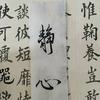 惟鞠養豈敢
静心
談彼短靡
使可覆